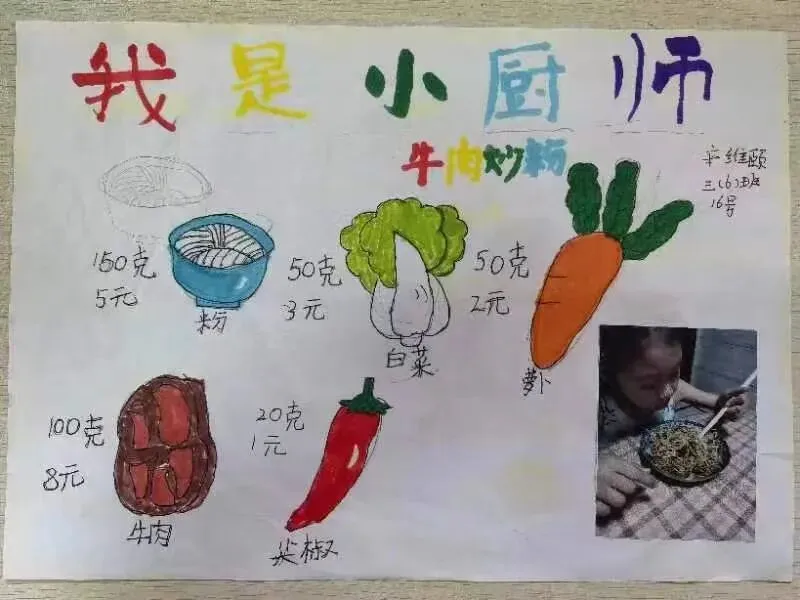 我是小厨师
牛肉炒粉
辛维颐
三(6)班
16号
150克
5元
粉
50克
3元
白菜
50克
2元
萝卜
100克
8元
牛肉
20克
1元
尖椒